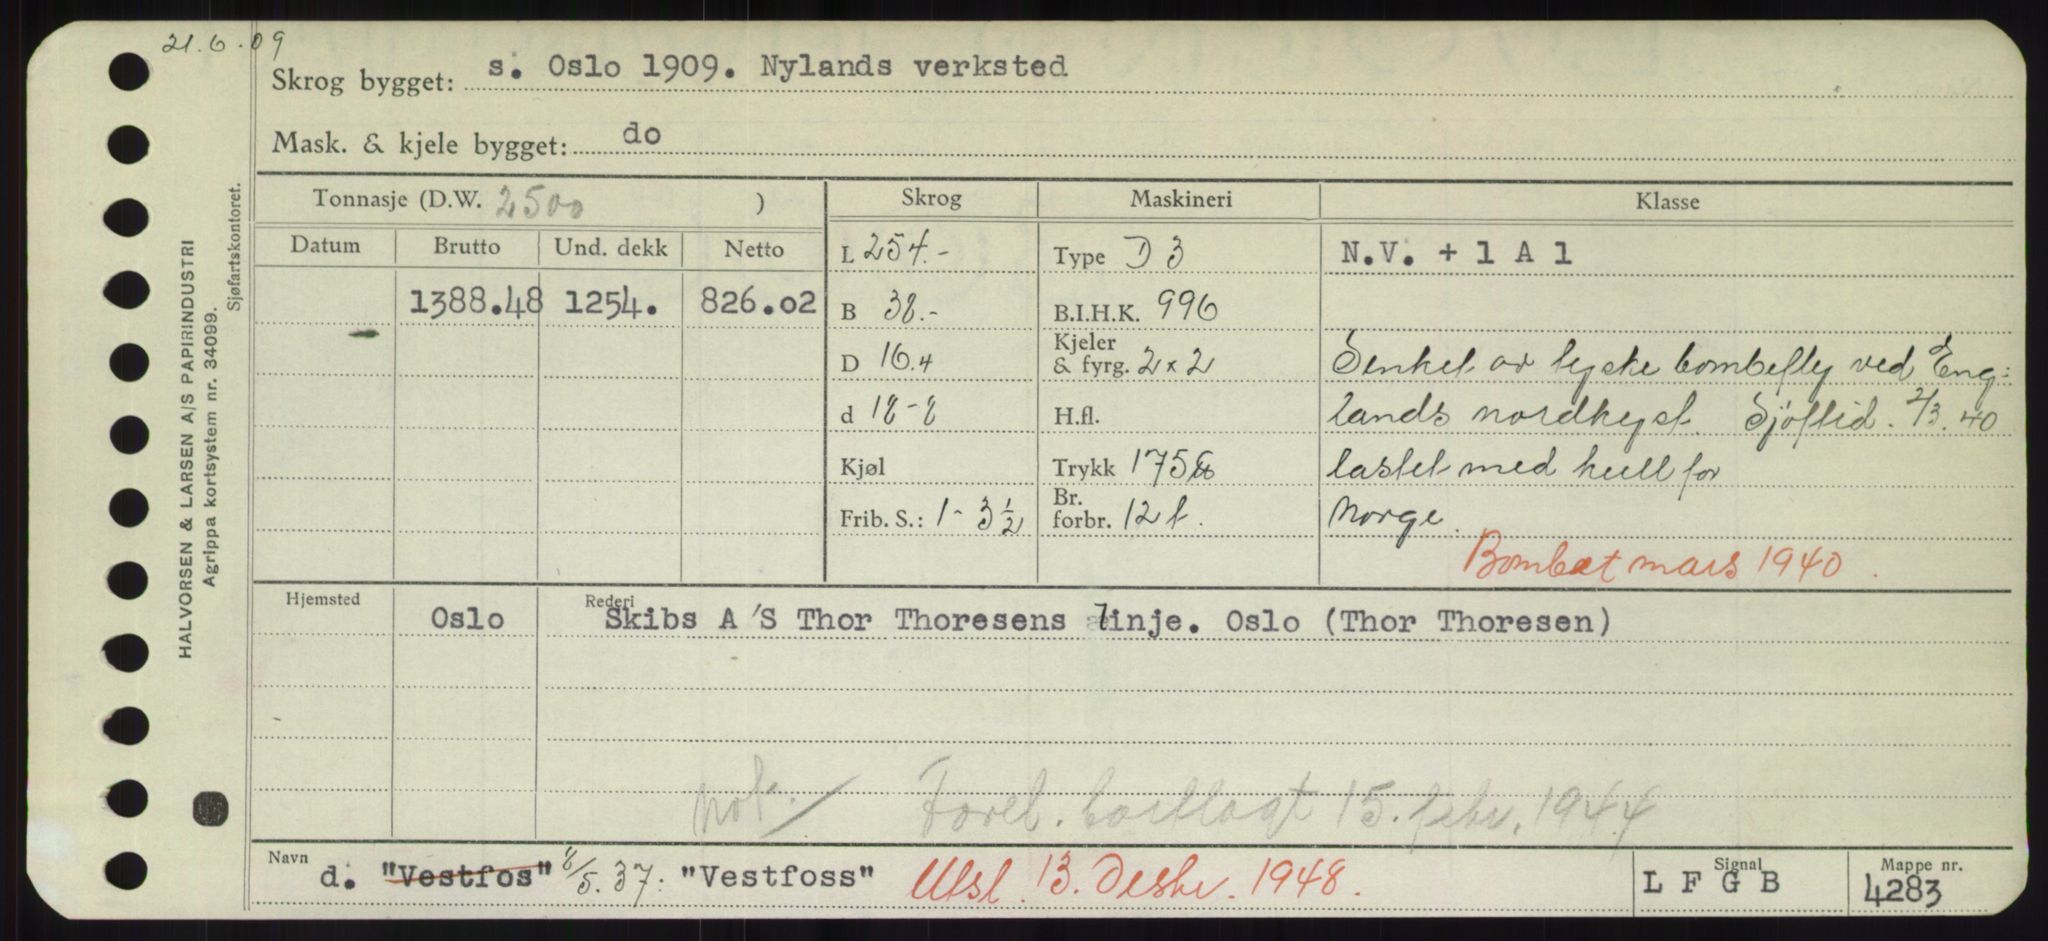 21.6.09
Skrog bygget: s. Oslo 1909. Nylands verksted
Mask. & kjele bygget: do
Tonnasje (D.W. 2500 ) Skrog Maskineri Klasse
Datum Brutto Und. dekk Netto L 254.- Type D 3 N.V. + 1 A 1
1388.48 1254. 826.02 B 38.- B.I.H.K. 996
D 16.4 Kjeler & fyrg. 2 x 2 Senket av tyske bombefly ved Eng-
d 18-8 H.fl. lands nordkyst. Sjöftid. 2/3.40
Kjøl Trykk 175 lastet med kull for
Frib. S.: 1-3 1/2 Br. forbr. 12 t. Norge.
Bombet mars 1940.
Hjemsted Oslo Rederi Skibs A/S Thor Thoresens linje. Oslo (Thor Thoresen)
not. / Forel. bortlagt 15. febr. 1944
Navn d. "Vestfos" 8/5.37: "Vestfoss" Utsl. 13. Desbr. 1948. Signal L F G B Mappe nr. 4283
HALVORSEN & LARSEN A/S PAPIRINDUSTRI
Agrippa kortsystem nr. 34099.
Sjøfartskontoret.